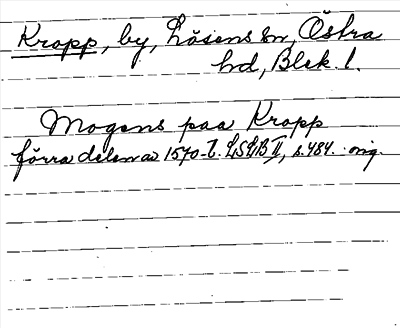 Kropp, by, Lösens sn, Östra
hd, Blek. l.
Mogens paa Kropp
förra delen av 1570-t. LSLB II, s. 484. orig.